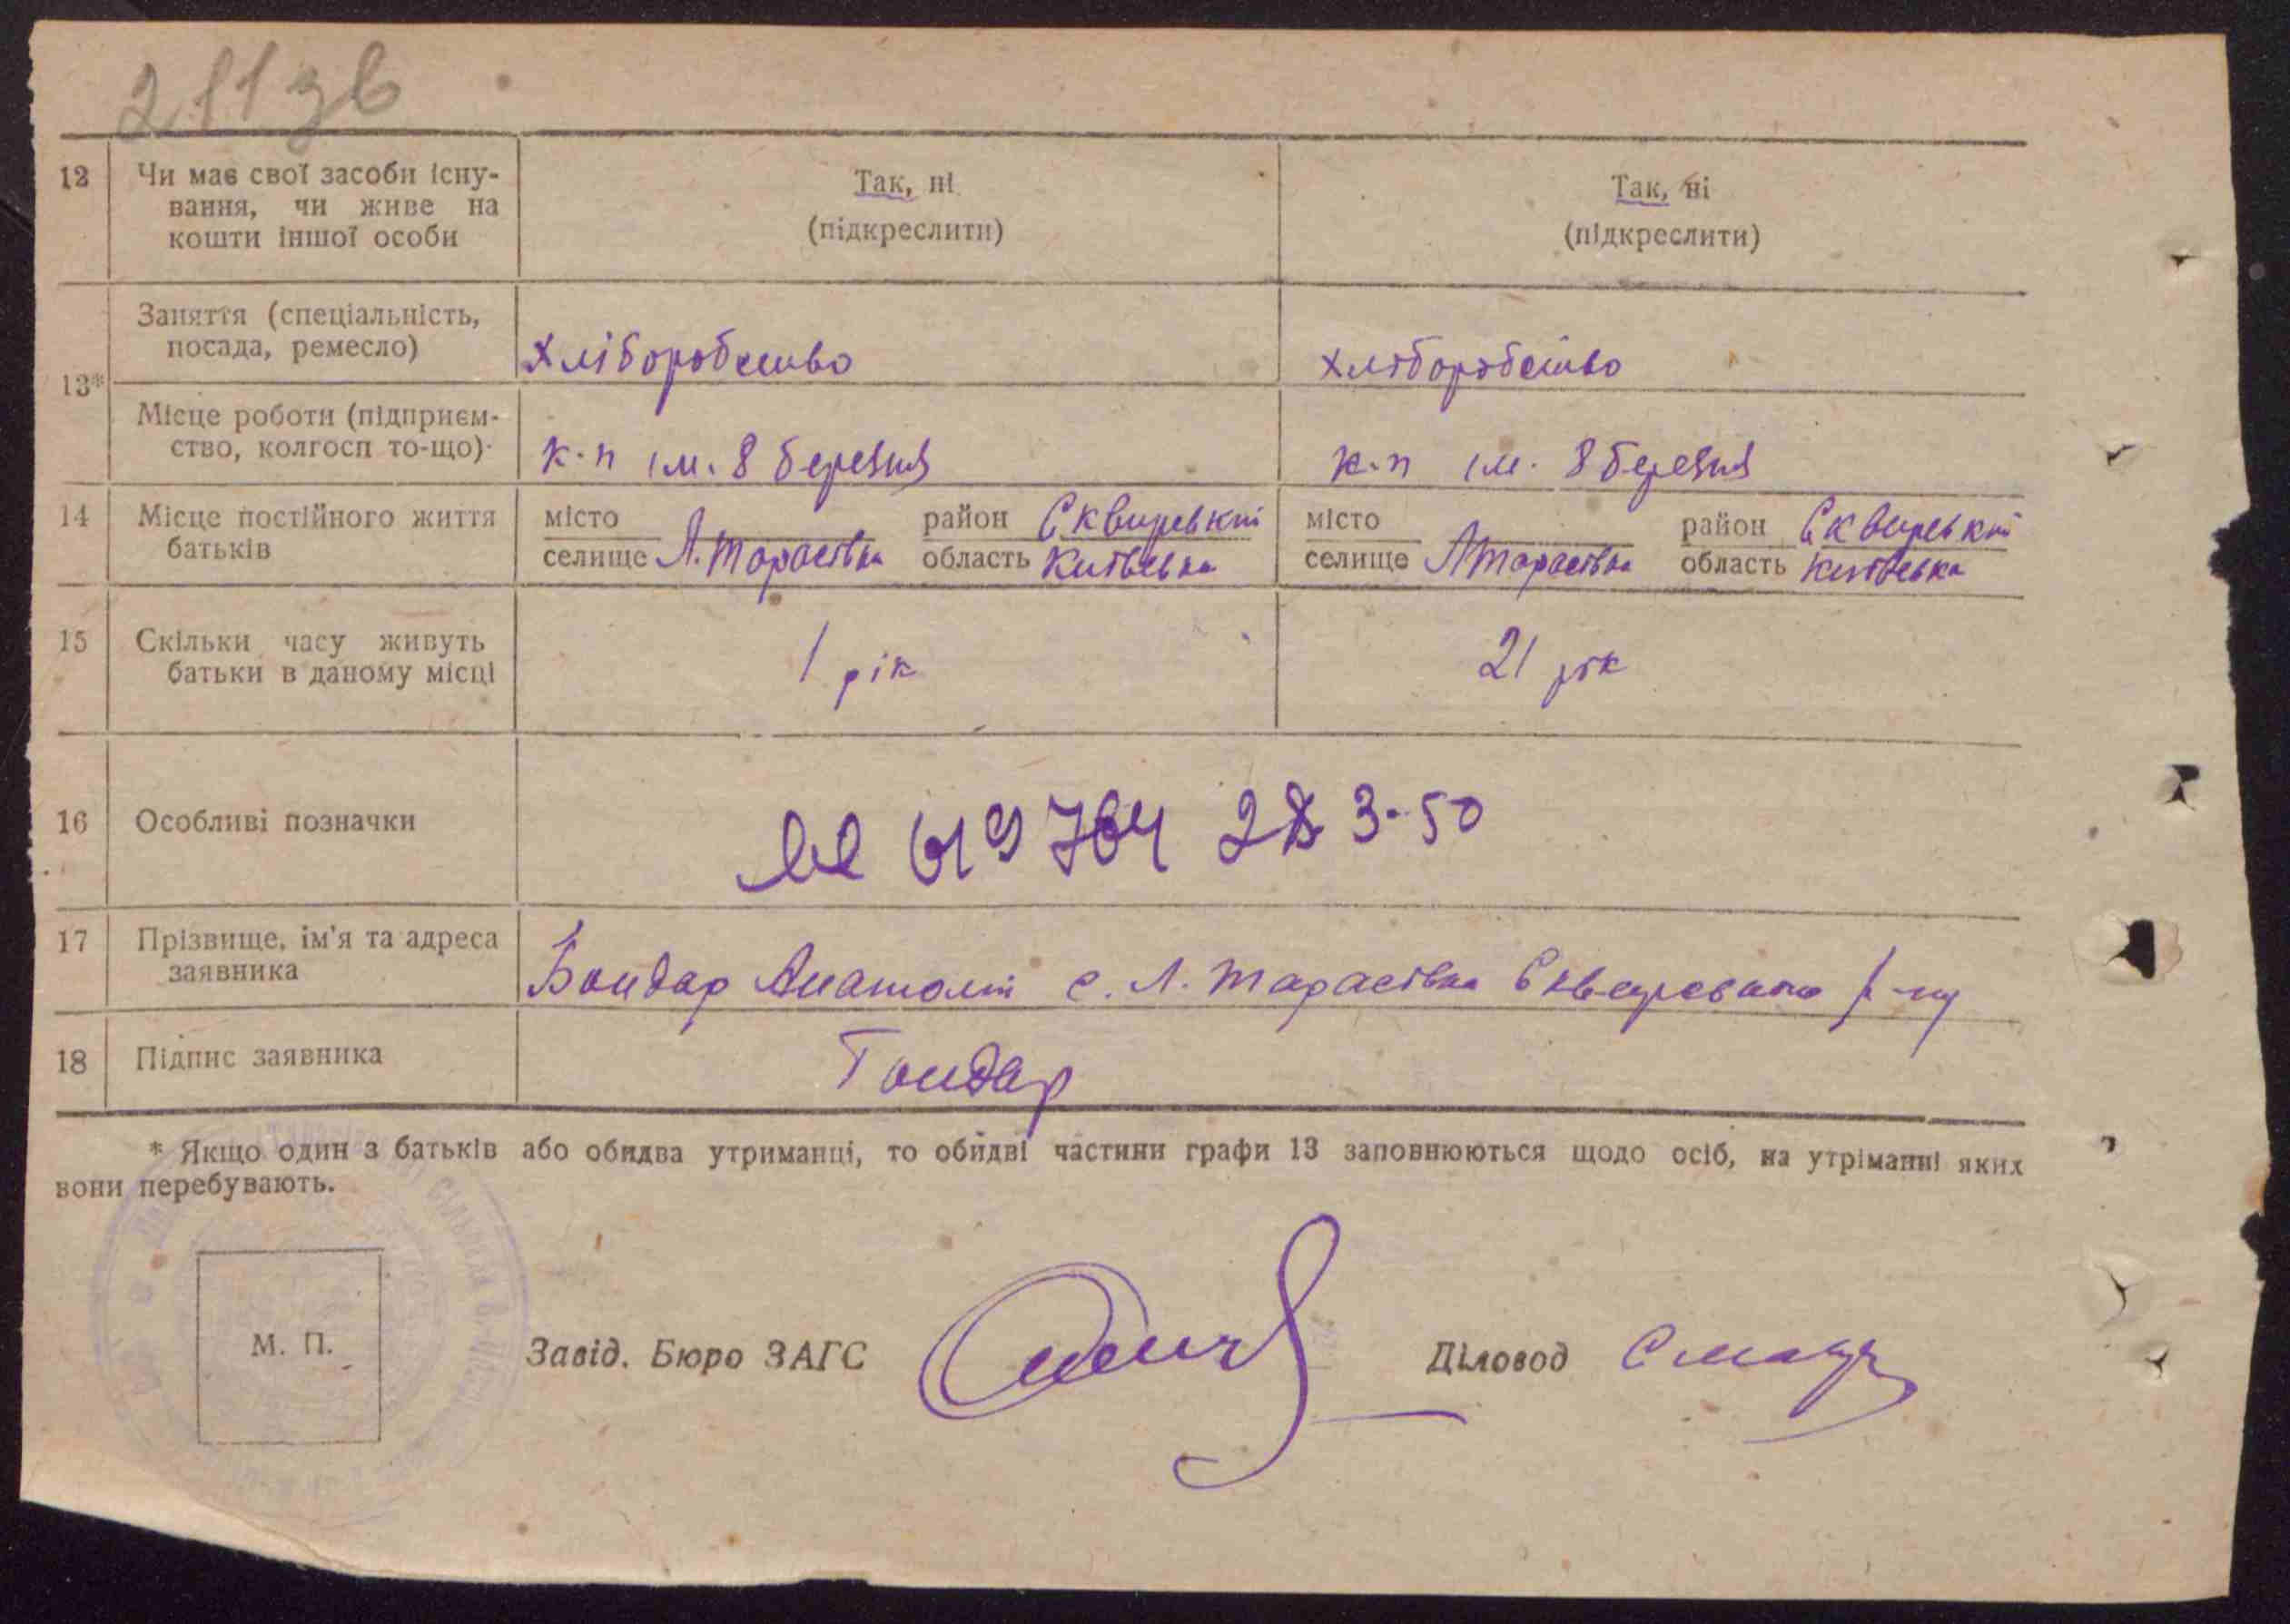 211зв
12 Чи має свої засоби існу- Так, ні Так, ні
вання, чи живе на (підкреслити) (підкреслити)
кошти іншої особи
13* Заняття (спеціальність,
посада, ремесло) Хліборобство хліборобство
Місце роботи (підприєм-
ство, колгосп то-що) к-п ім. 8 березня к-п ім. 8 березня
14 Місце постійного життя місто район Сквирський місто район Сквирський
батьків селище Л. Тарасівка область Київська селище Л Тарасівка область Київська
15 Скільки часу живуть 1 рік 21 рік
батьки в даному місці
16 Особливі позначки 619764 28 3-50
17 Прізвище, ім'я та адреса
заявника Бондар Анатолій с. Л. Тарасівка Сквирського р-ну
18 Підпис заявника Бондар
* Якщо один з батьків або обидва утриманці, то обидві частини графи 13 заповнюються щодо осіб, на утріманні яких
вони перебувають.
М. П. Завід. Бюро ЗАГС Діловод